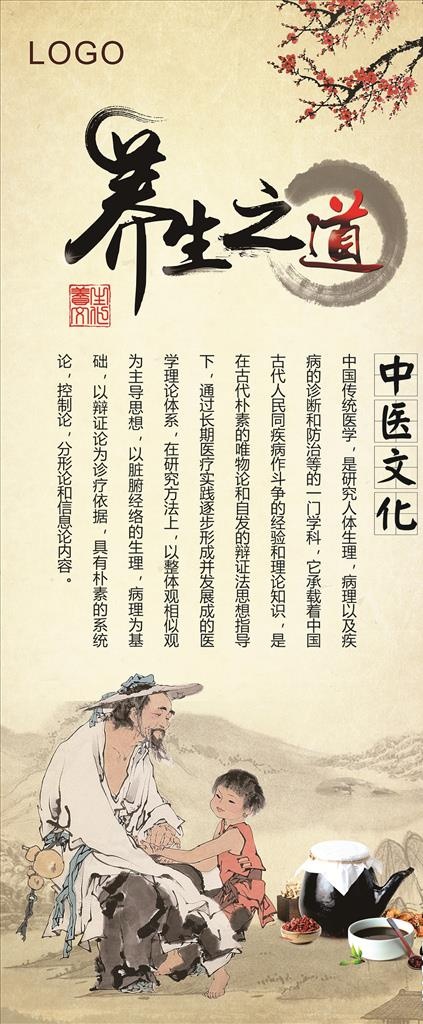 LOGO
养生之道
养生文化
中医文化
中国传统医学，是研究人体生理，病理以及疾
病的诊断和防治等的一门学科，它承载着中国
古代人民同疾病作斗争的经验和理论知识，是
在古代朴素的唯物论和自发的辩证法思想指导
下，通过长期医疗实践逐步形成并发展成的医
学理论体系，在研究方法上，以整体观相似观
为主导思想，以脏腑经络的生理，病理为基
础，以辩证论为诊疗依据，具有朴素的系统
论，控制论，分形论和信息论内容。